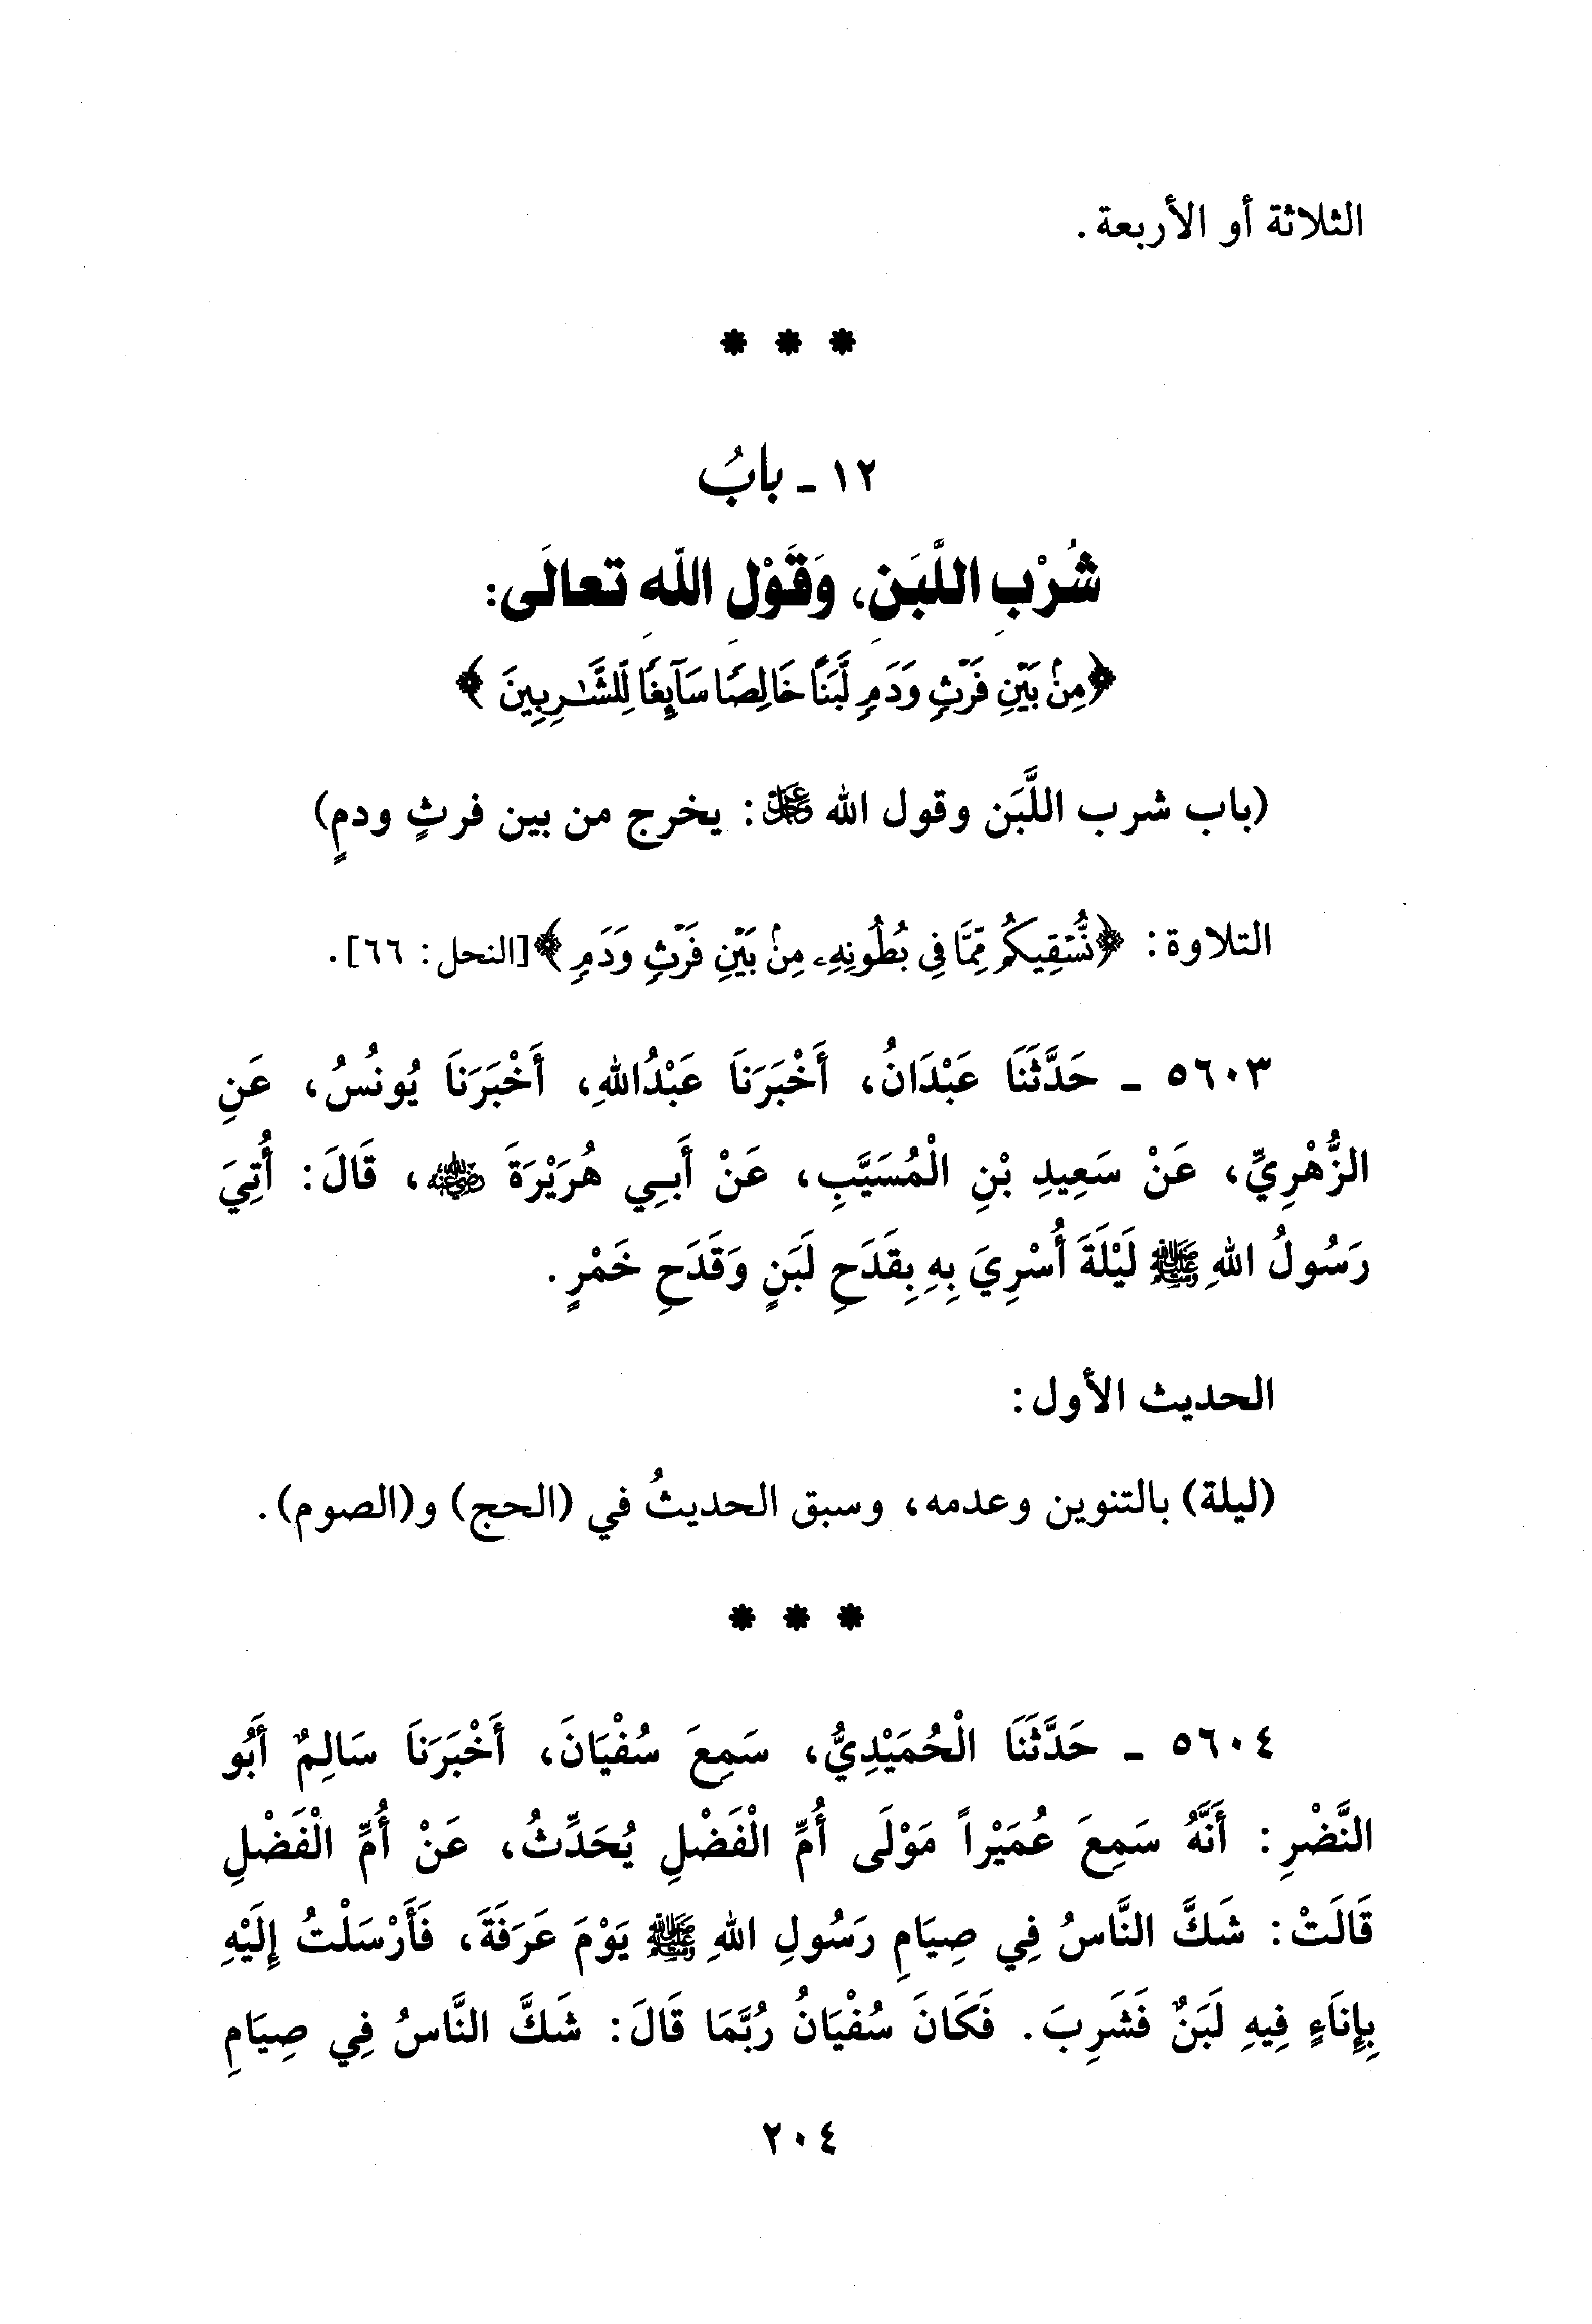 الثلاثة أو الأربعة.
* * *
١٢ - بابُ
شُرْبِ اللَّبَنِ، وَقَوْلِ اللَّهِ تعالَى:
﴿مِنۢ بَيْنِ فَرْثٍ وَدَمٍ لَّبَنًا خَالِصًا سَآئِغًا لِّلشَّـٰرِبِينَ﴾
(باب شرب اللَّبَن وقول الله عَزَّ وَجَلَّ: يخرج من بين فرثٍ ودمٍ)
التلاوة: ﴿نُّسْقِيكُم مِّمَّا فِى بُطُونِهِۦ مِنۢ بَيْنِ فَرْثٍ وَدَمٍ﴾ [النحل: ٦٦].
٥٦٠٣ - حَدَّثَنَا عَبْدَانُ، أَخْبَرَنَا عَبْدُاللهِ، أَخْبَرَنَا يُونُسُ، عَنِ
الزُّهْرِيِّ، عَنْ سَعِيدِ بْنِ الْمُسَيَّبِ، عَنْ أَبِي هُرَيْرَةَ رضي الله عنه، قَالَ: أُتِيَ
رَسُولُ اللهِ ﷺ لَيْلَةَ أُسْرِيَ بِهِ بِقَدَحِ لَبَنٍ وَقَدَحِ خَمْرٍ.
الحديث الأول:
(ليلة) بالتنوين وعدمه، وسبق الحديثُ في (الحج) و(الصوم).
* * *
٥٦٠٤ - حَدَّثَنَا الْحُمَيْدِيُّ، سَمِعَ سُفْيَانَ، أَخْبَرَنَا سَالِمٌ أَبُو
النَّضْرِ: أَنَّهُ سَمِعَ عُمَيْراً مَوْلَى أُمِّ الْفَضْلِ يُحَدِّثُ، عَنْ أُمِّ الْفَضْلِ
قَالَتْ: شَكَّ النَّاسُ فِي صِيَامِ رَسُولِ اللهِ ﷺ يَوْمَ عَرَفَةَ، فَأَرْسَلْتُ إِلَيْهِ
بِإِنَاءٍ فِيهِ لَبَنٌ فَشَرِبَ. فَكَانَ سُفْيَانُ رُبَّمَا قَالَ: شَكَّ النَّاسُ فِي صِيَامِ
٢٠٤